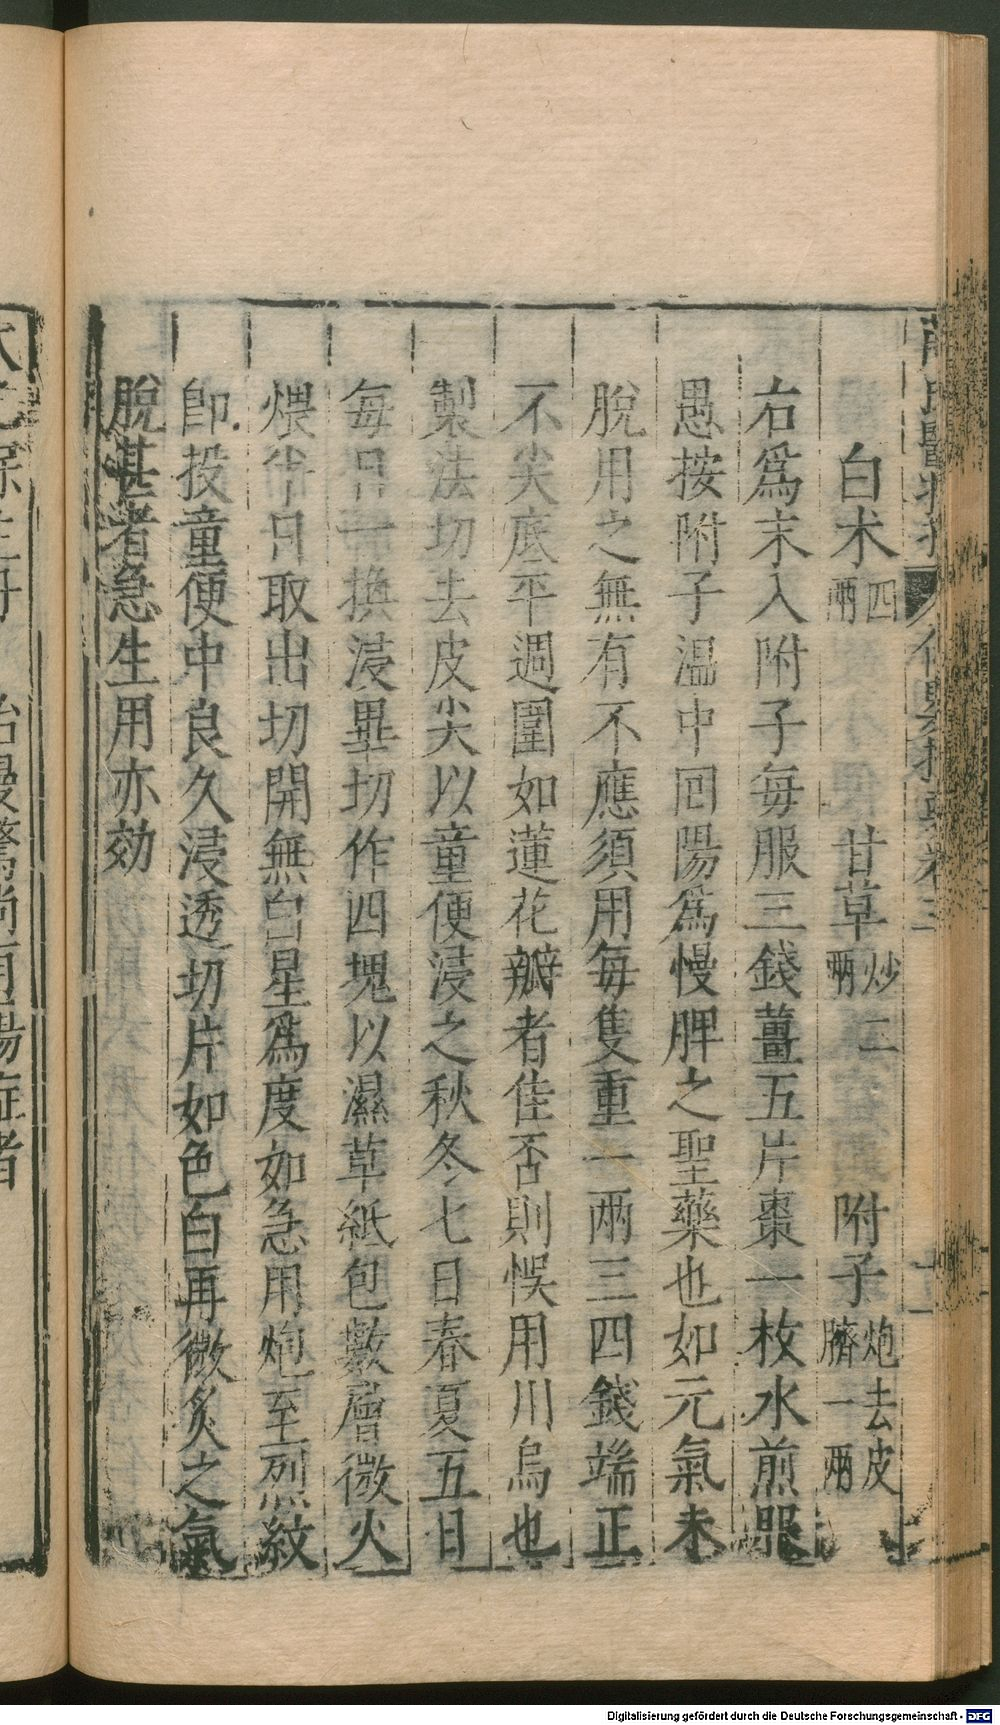 白术四兩 甘草炒二兩 附子炮去皮臍一兩
右爲末入附子每服三錢薑五片棗一枚水煎服
愚按附子溫中回陽爲慢脾之聖藥也如元氣未
脫用之無有不應須用每隻重一兩三四錢端正
不尖底平週圍如蓮花瓣者佳否則悞用川烏也
製法切去皮尖以童便浸之秋冬七日春夏五日
每日一換浸畢切作四塊以濕草紙包數層微火
煨半日取出切開無白星爲度如急用炮至烈紋
卽投童便中良久浸透切片如色白再微炙之氣
脫甚者急生用亦効
治慢驚尚有陽症者
Digitalisierung gefördert durch die Deutsche Forschungsgemeinschaft - DFG